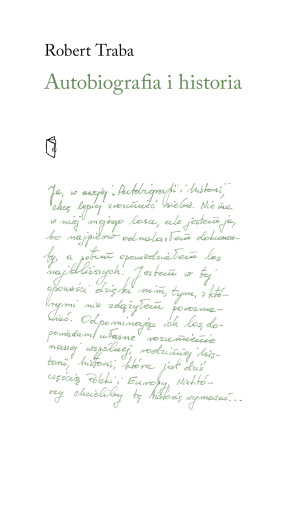 Robert Traba
Autobiografia i historia
Ja, w swojej "Autobiografii i historii",
chcę lepiej zrozumieć siebie. Nie ma
w niej mojego losu, ale jestem ja,
bo najpierw odnalazłem dokumen-
ty, a potem opowiedziałem los
najbliższych. Jestem w tej
opowieści dzięki nim, tym, z któ-
rymi nie zdążyłem porozma-
wiać. Odpominając ich los, do-
powiadam własne rozumienie
nowej wspólnej, rodzinnej his-
torii, historii, która jest dziś
częścią Polski i Europy. Niektó-
rzy chcieliby tę historię wymazać...